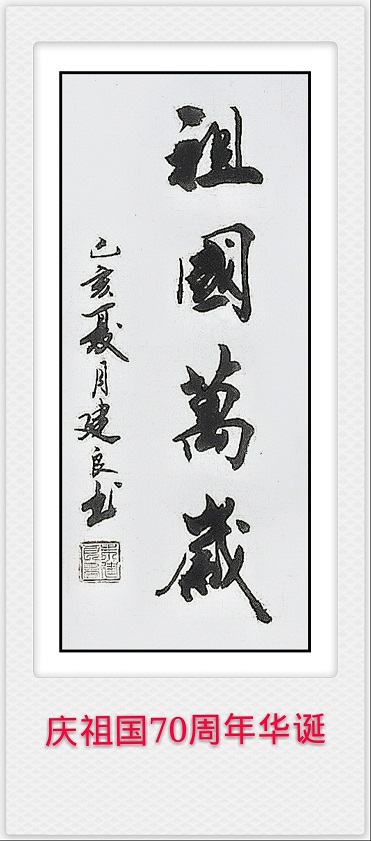 祖國萬歲
己亥夏月建良书
庆祖国70周年华诞